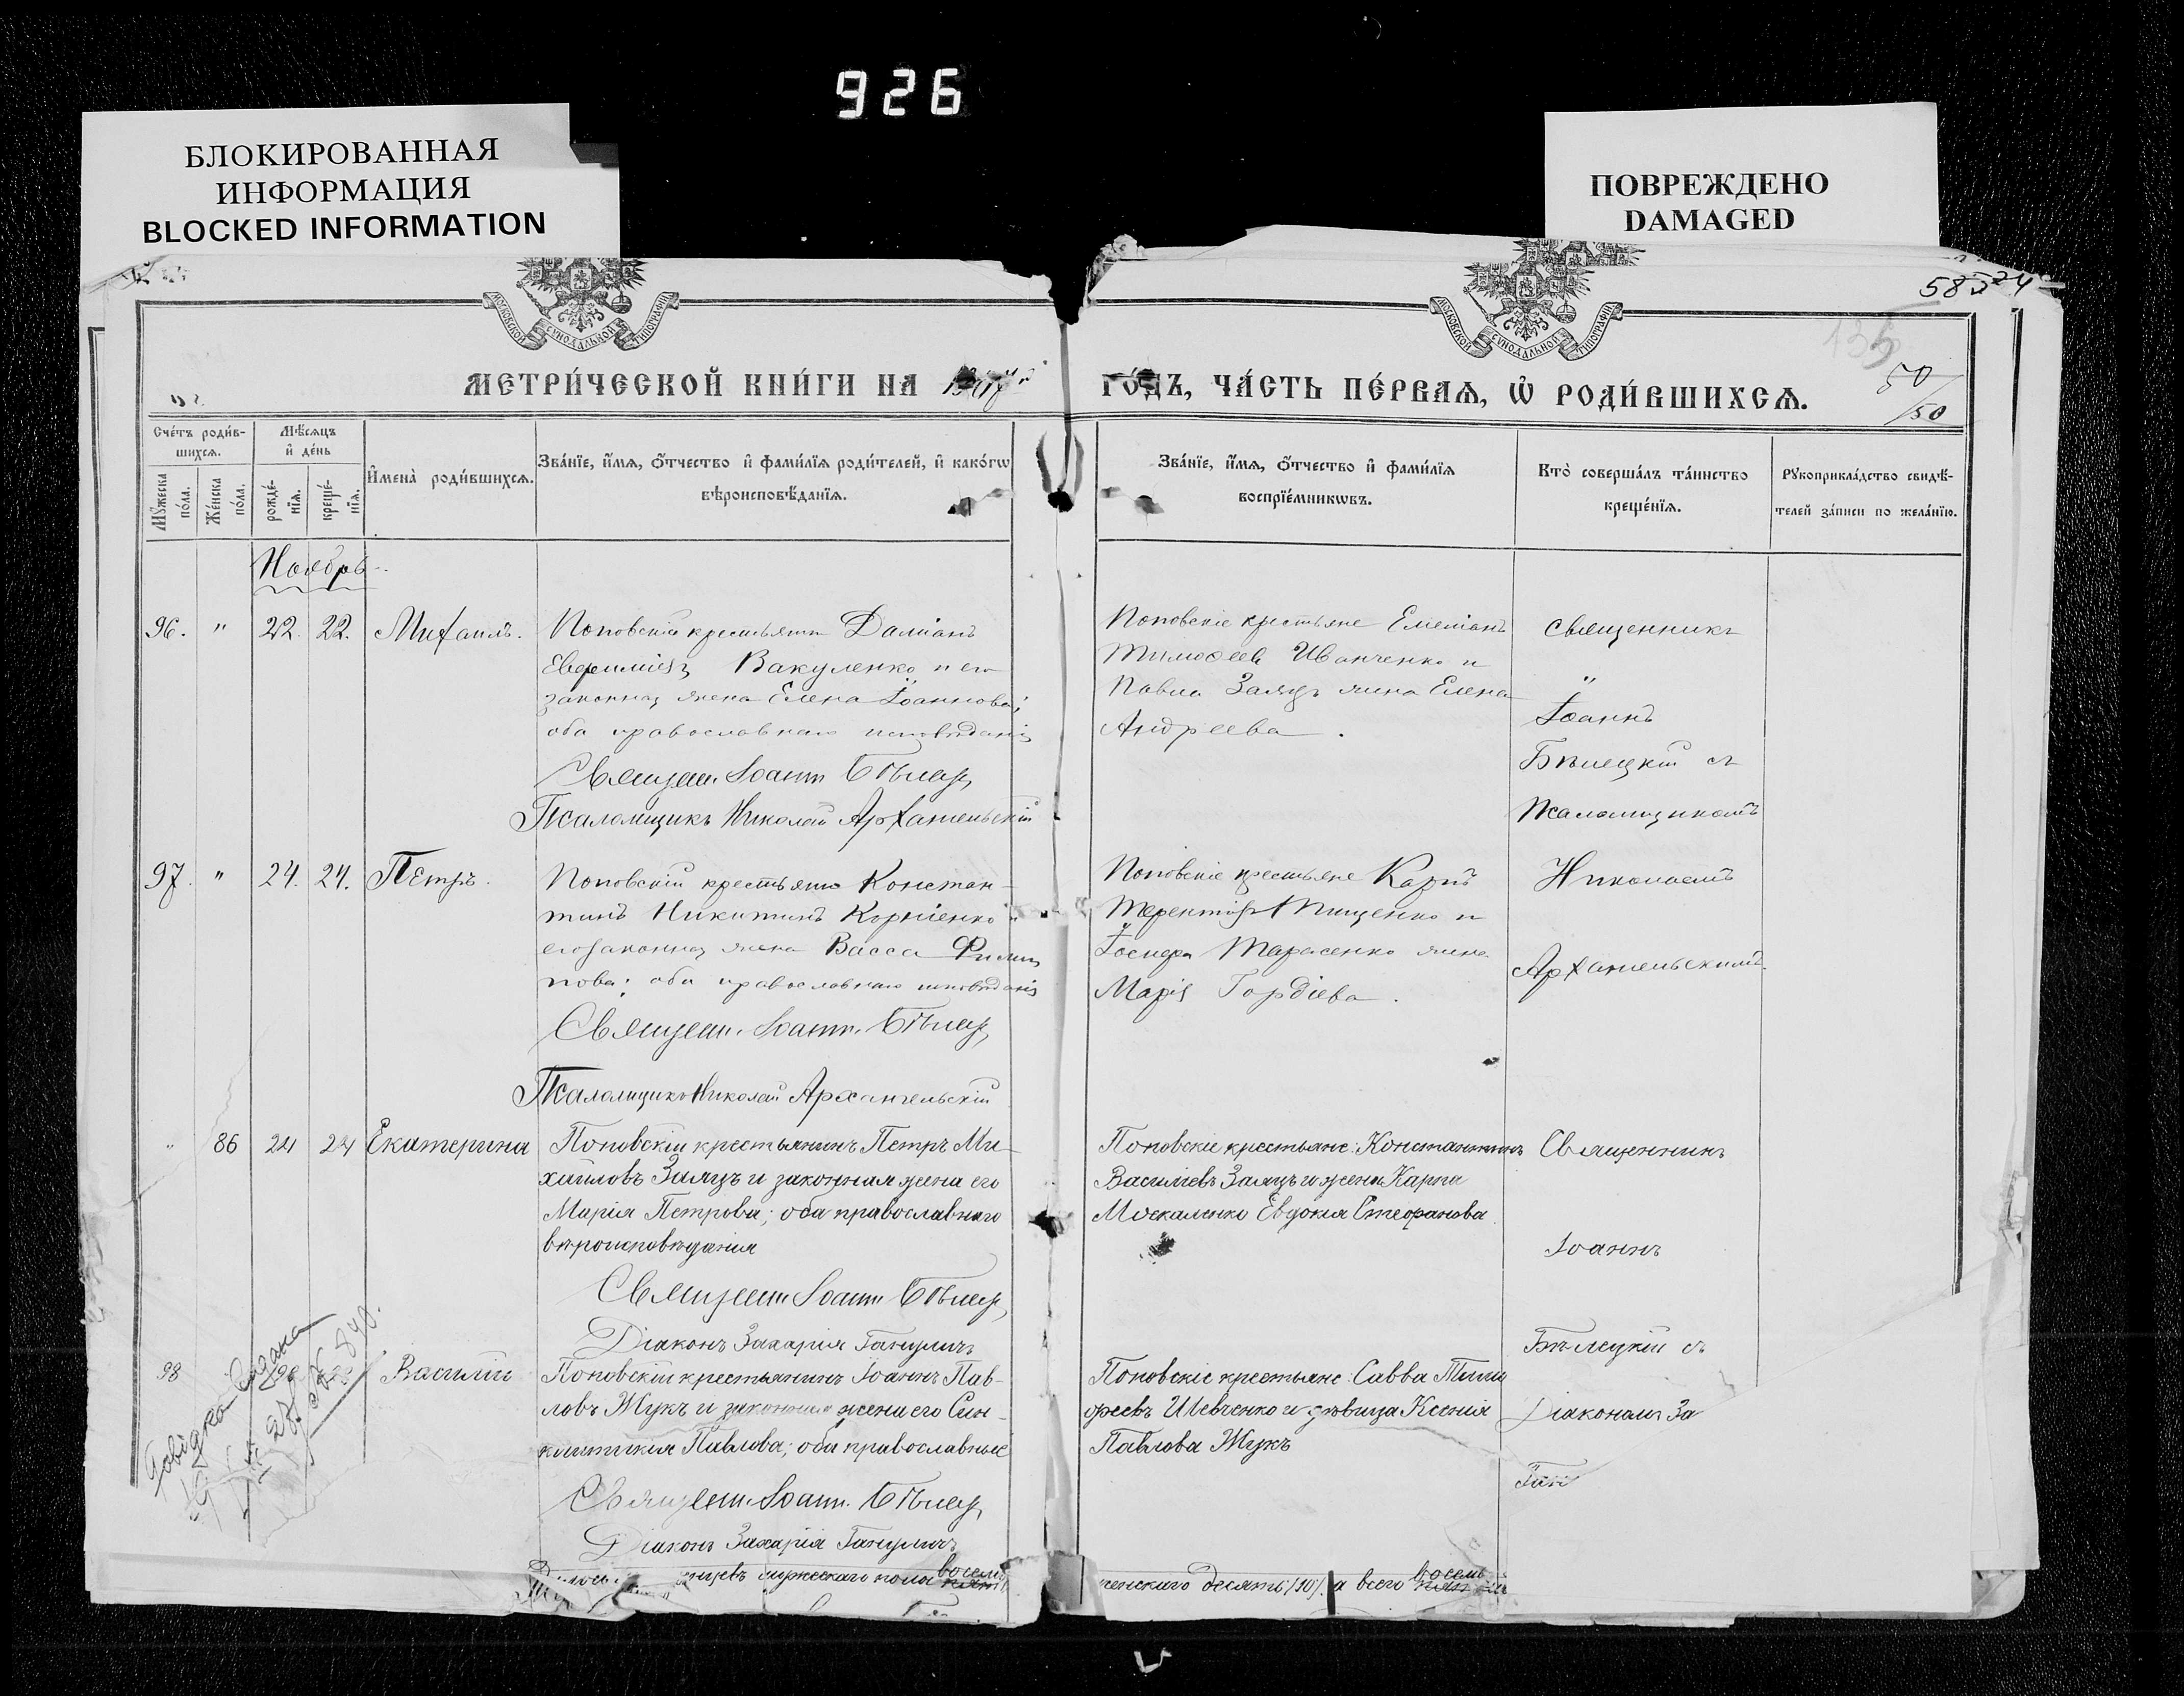 926
БЛОКИРОВАННАЯ
ИНФОРМАЦИЯ
BLOCKED INFORMATION
ПОВРЕЖДЕНО
DAMAGED
МОСКОВСКОЙ СѴНОДАЛЬНОЙ ТИПОГРАФІИ
МОСКОВСКОЙ СѴНОДАЛЬНОЙ ТИПОГРАФІИ
585
50
50
МЕТРИ́ЧЕСКОЙ КНИ́ГИ НА
ГО́ДЪ, ЧА́СТЬ ПЕ́РВАѦ, Ѡ҆ РОДИ́ВШИХСѦ.
Сче́тъ роди́в-
шихсѧ.
Мѣ́сяцъ
и҆ де́нь
Мꙋ́жеска
по́ла.
Же́нска
по́ла.
рожде́-
нїѧ.
креще́-
нїѧ.
И҆мена̀ роди́вшихсѧ.
Зва́нїе, и҆́мѧ, ѻ҆́тчество и҆ фами́лїѧ роди́телей, и҆ како́гѡ
вѣроисповѣ́данїѧ.
Зва́нїе, и҆́мѧ, ѻ҆́тчество и҆ фами́лїѧ
воспрїе́мникѡвъ.
Кто̀ соверша́лъ та́инство
креще́нїѧ.
Рꙋкоприкла́дство свидѣ́-
телей за́писи по жела́нїю.
Ноябрь
96. " 22. 22. Михаилъ.
Поповскій крестьянинъ Даміанъ
Евфиміевъ Вакуленко и его
законная жена Елена Іоаннова;
оба православнаго исповѣданія
Священ. Іоаннъ Бѣлец
Псаломщикъ Николай Архангельскій
Поповскіе крестьяне Емеліанъ
Тимоѳеевъ Иванченко и
Павла Заяцъ жена Елена
Андреева.
Священникъ
"
Іоаннъ
Бѣлецкій съ
Псаломщикомъ
97. " 24. 24. Петръ.
Поповскій крестьянинъ Констан-
тинъ Никитинъ Корніенко и
его законная жена Васса Филип
пова; оба православнаго исповѣданія
Священ. Іоаннъ Бѣлец
Псаломщикъ Николай Архангельскій
Поповскіе крестьяне Карпъ
Терентіевъ Пищенко и
Іосифа Тарасенко жена
Марія Гордіева.
Николаемъ
Архангельскимъ.
" 86 24 24 Екатерина
Поповскій крестьянинъ Петръ Ми-
хаиловъ Заяцъ и законная жена его
Марія Петрова; оба православнаго
вѣроисповѣданія
Священ Іоаннъ Бѣлец
Діаконъ Захарія
Поповскіе крестьяне: Константинъ
Василіевъ Заяцъ и жена Карпа
Москаленко Евдокія Стефанова
Священникъ
Іоаннъ
Бѣлецкій съ
98 Василій
Поповскій крестьянинъ Іоаннъ Пав-
ловъ Жукъ и законная жена его Син-
клитикія Павлова; оба православные
Священ. Іоаннъ Бѣлец
Діаконъ Захарія
Поповскіе крестьяне: Савва Тимо
ѳеевъ Шевченко и дѣвица Ксенія
Павлова Жукъ
Діакономъ За
мужескаго пола восемь
женскаго десять /10/. а всего восемь